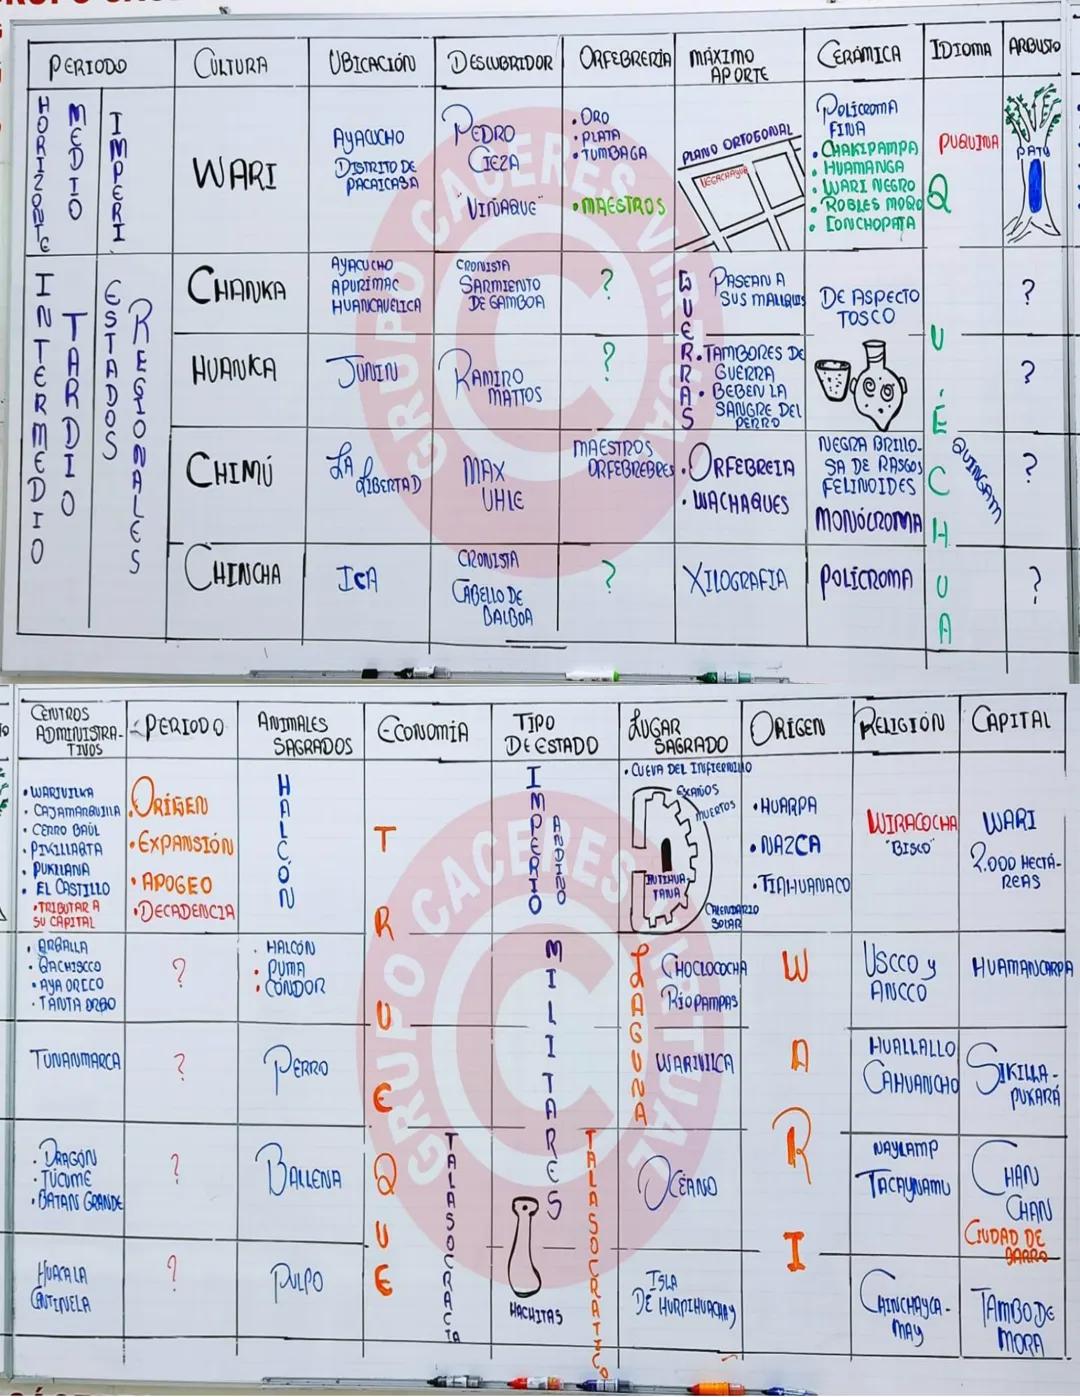 PERIODO
CULTURA
UBICACIÓN
DESCUBRIDOR
ORFEBRERÍA
MÁXIMO
APORTE
CERÁMICA
IDIOMA
ARBUSTO
HORIZONTE
MEDIO
IMPERI
WARI
AYACUCHO
DISTRITO DE
PACAICASA
PEDRO
CIEZA
"VIÑAQUE"
• ORO
• PLATA
• TUMBAGA
• MAESTROS
PLANO ORTOGONAL
VEGACHAYUQ
POLÍCROMA
FINA
• CHAKIPAMPA
• HUAMANGA
• WARI NEGRO
• ROBLES MORO
• CONCHOPATA
PUQUINA
PATI
QUÉCHUA
INTERMEDIO
TARDIO
ESTADOS
REGIONALES
CHANKA
AYACUCHO
APURÍMAC
HUANCAVELICA
CRONISTA
SARMIENTO
DE GAMBOA
?
GUERRAS
PASEAN A
SUS MALLQUIS
DE ASPECTO
TOSCO
?
HUANKA
JUNIN
RAMIRO
MATTOS
?
• TAMBORES DE
GUERRA
• BEBEN LA
SANGRE DEL
PERRO
?
CHIMÚ
LA
LIBERTAD
MAX
UHLE
MAESTROS
ORFEBREBRES
• ORFEBREIA
• WACHAQUES
NEGRA BRILLO-
SA DE RASGOS
FELINOIDES
MONÓCROMA
QUINGAM
?
CHINCHA
ICA
CRONISTA
CABELLO DE
BALBOA
?
XILOGRAFIA
POLÍCROMA
?
CENTROS
ADMINISTRA-
TIVOS
PERIODO
ANIMALES
SAGRADOS
ECONOMÍA
TIPO
DE ESTADO
LUGAR
SAGRADO
ORIGEN
RELIGIÓN
CAPITAL
• WARIVILKA
• CAJAMARQUILLA
• CERRO BAÚL
• PIKILLAQTA
• PUKLLANA
• EL CASTILLO
• TRIBUTAR A
SU CAPITAL
• ORÍGEN
• EXPANSIÓN
• APOGEO
• DECADENCIA
HALCÓN
TRUEQUE
IMPERIO
ANDINO
• CUEVA DEL INFIERNILLO
MUERTOS
INTIHUA-
TANA
CALENDARIO
SOLAR
• HUARPA
• NAZCA
• TIAHUANACO
WIRACOCHA
"BISCO"
WARI
2.000 HECTÁ-
REAS
• AYA ORCCO
?
• HALCÓN
• PUMA
• CÓNDOR
MILITARES
LAGUNA
CHOCLOCOCHA
RIO PAMPAS
WARI
USCCO y
ANCCO
HUAMANCARPA
TUNANMARCA
?
PERRO
WARIVILCA
HUALLALLO
CAHUANCHO
SIKILLA-
PUKARÁ
• DRAGÓN
• TÚCUME
• BATAN GRANDE
?
BALLENA
TALASOCRACIA
TALASOCRATICO
OCÉANO
NAYLAMP
TACAYNAMU
CHAN
CHAN
CIUDAD DE
BARRO
HUACA LA
CENTINELA
?
PULPO
HACHITAS
ISLA
CHINCHAYCA-
MAY
TAMBO DE
MORA
GRUPO CACERES VIRTUAL